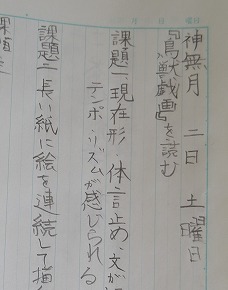 神無月 二日 土曜日
『鳥獣戯画』を読む
課題一、現在形・体言止め、文が
テンポ・リズムが感じられる
課題二 長い紙に絵を連続して描
課題三